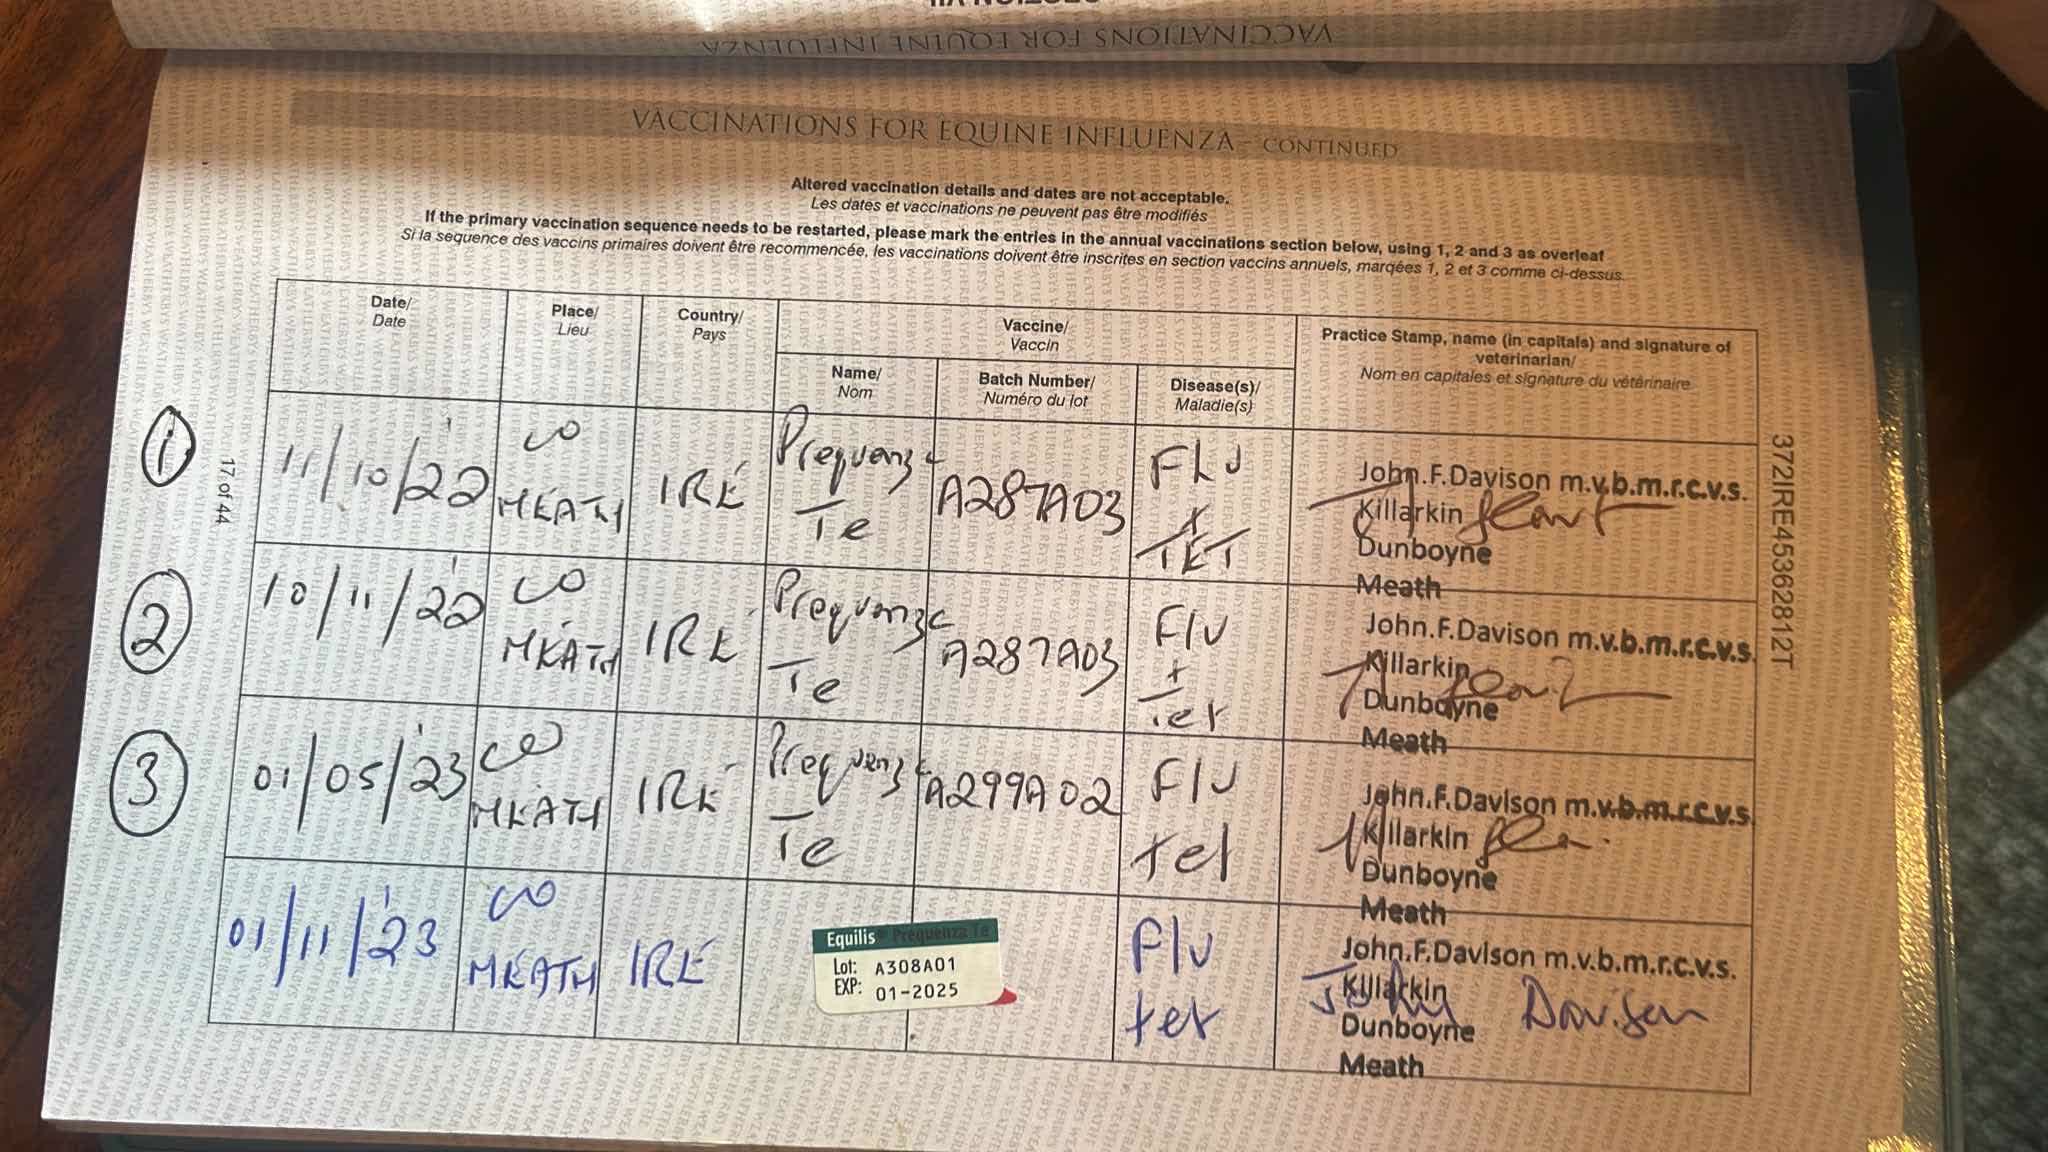 VACCINATIONS FOR EQUINE INFLUENZA
VACCINATIONS FOR EQUINE INFLUENZA - CONTINUED
Altered vaccination details and dates are not acceptable.
Les dates et vaccinations ne peuvent pas être modifiés
If the primary vaccination sequence needs to be restarted, please mark the entries in the annual vaccinations section below, using 1, 2 and 3 as overleaf
Si la sequence des vaccins primaires doivent être recommencée, les vaccinations doivent être inscrites en section vaccins annuels, marqées 1, 2 et 3 comme ci-dessus.
Date/
Date
Place/
Lieu
Country/
Pays
Vaccine/
Vaccin
Name/
Nom
Batch Number/
Numéro du lot
Disease(s)/
Maladie(s)
Practice Stamp, name (in capitals) and signature of
veterinarian/
Nom en capitales et signature du vétérinaire
1
11/10/'22
CO
MEATH
IRE
Prequenza
Te
A287A03
FLU
+
TET
John.F.Davison m.v.b.m.r.c.v.s.
Killarkin
Dunboyne
Meath
2
10/11/'22
CO
MEATH
IRE
Prequenza
Te
A287A03
Flu
+
Tet
John.F.Davison m.v.b.m.r.c.v.s.
Killarkin
Dunboyne
Meath
3
01/05/'23
CO
MEATH
IRE
Prequenza
Te
A299A02
Flu
tet
John.F.Davison m.v.b.m.r.c.v.s.
Killarkin
Dunboyne
Meath
01/11/'23
CO
MEATH
IRE
Equilis Prequenza Te
Lot: A308A01
EXP: 01-2025
Flu
tet
John.F.Davison m.v.b.m.r.c.v.s.
Killarkin
Dunboyne
Meath
John Davison
17 of 44
372IRE45362812T